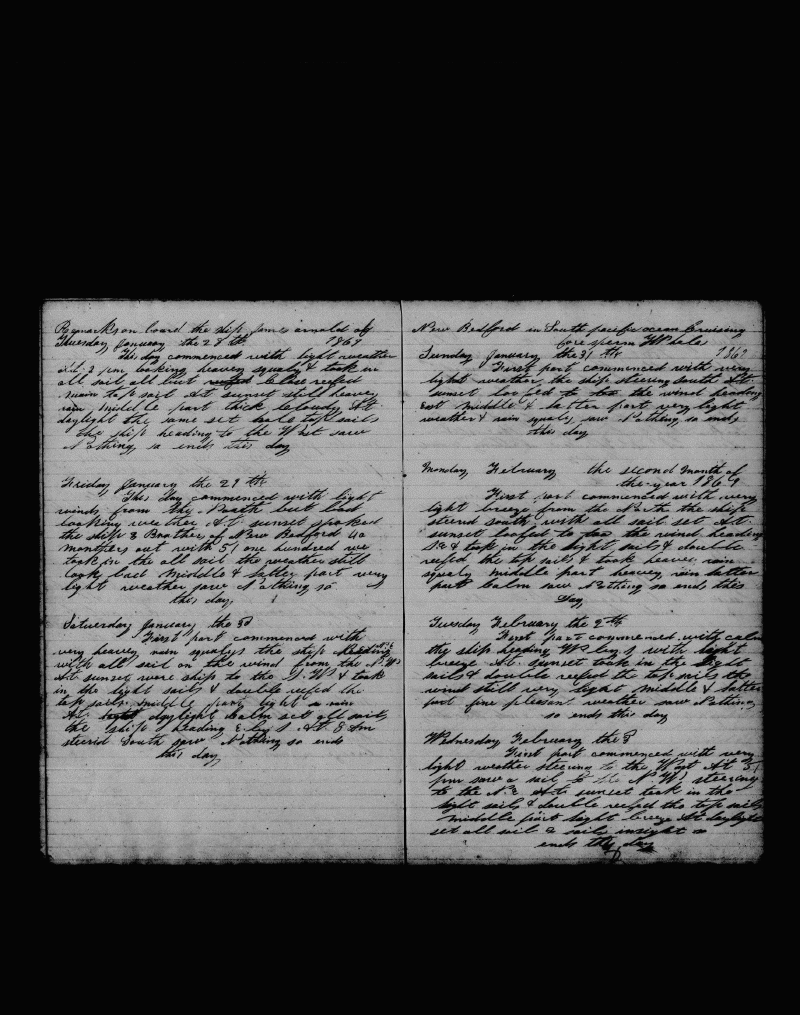 Remarks on board the ship James arnold of
Thursday January the 28th 1869
This day commenced with light weather
At 2 pm looking heavey squaly & took in
all sail all but close reefed
main top sail At sunset still heavey
rain middle part thick cloudy At
daylight the same set top sails
the ship heading to the W saw
Nothing so ends this day
Friday January the 29th
This day commenced with light
winds from the North but bad
looking weather At sunset spoked
the ship 3 Brother of New Bedford 40
months out with 51 one hundred we
took in the all sail the weather still
look bad Middle & latter part very
light weather saw Nothing so
this day
Saturday January the 30
First part commenced with
very heavey rain squalys the ship heading
with all sail on the wind from the N.W
At sunset wore ship to the S.W & took
in the light sails & double reefed the
top sails middle part light & rain
At daylight calm set all sail
the ship heading E by S At 8 Am
steerid South saw Nothing so ends
this day
New Bedford in South pacific ocean Cruising
fore sperm Whale
Sunday January the 31th 1869
First part commenced with very
light weather the ship steering south At
sunset loofed to the wind heading
East middle & latter part very light
weather & rain squaly saw Nothing so ends
this day
Monday February the second Month of
the year 1869
First part commenced with very
light breeze from the North the ship
steerd south with all sail set At
sunset loofed to the wind heading
& took in the light sails & double
reefed the top sails & took heavey rain
squaly middle part heavey rain latter
part calm saw Nothing so ends this
Day
Tuesday February the 2th
First part commenced with calm
the ship heading W by S with light
breeze At sunset took in the light
sails & double reefed the top sails the
wind still very light middle & latter
part fine pleasent weather saw Nothing
so ends this day
Wednesday February the 3
First part commenced with very
light weather steering to the West At 5
pm saw a sail to the N.W steering
to the N.E At sunset took in the
light sails & double reefed the top sails
middle part light breeze At daylight
set all sail 2 sails insight so
ends this day